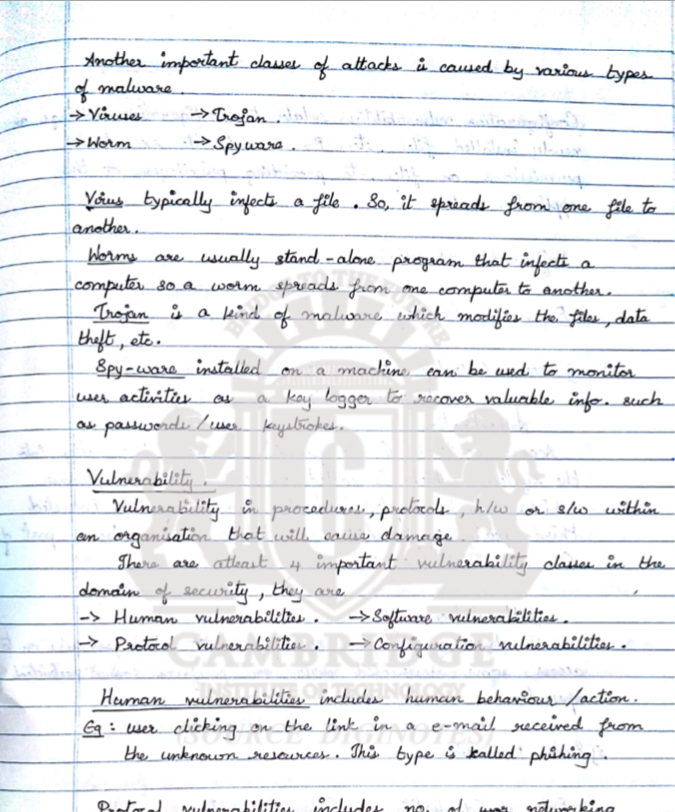 Another important classes of attacks is caused by various types
of malware.
→ Viruses → Trojan.
→ Worm → Spyware.
Virus typically infects a file. So, it spreads from one file to
another.
Worms are usually stand-alone program that infects a
computer so a worm spreads from one computer to another.
Trojan is a kind of malware which modifies the files, data
theft, etc.
Spy-ware installed on a machine can be used to monitor
user activities as a key logger to recover valuable info. such
as passwords / user keystrokes.
Vulnerability.
Vulnerability in procedures, protocols, h/w or s/w within
an organisation that will cause damage.
There are atleast 4 important vulnerability classes in the
domain of security, they are
-> Human vulnerabilities. → Software vulnerabilities.
-> Protocol vulnerabilities. → Configuration vulnerabilities.
CAMBRIDGE
INSTITUTE OF TECHNOLOGY
Human vulnerabilities includes human behaviour /action.
Eg: user clicking on the link in a e-mail received from
(SOURCE DIGINOTES)
the unknown resources. This type is kalled phishing.
Protocol vulnerabilities includes no. of networking